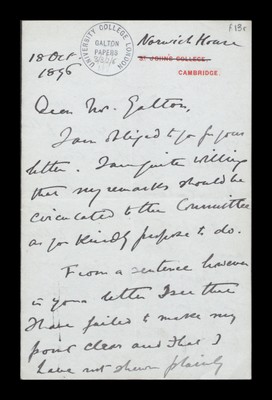 f.13r
Norwich House
18 Oct
1896
UNIVERSITY COLLEGE LONDON
GALTON
PAPERS
ST JOHN'S COLLEGE,
CAMBRIDGE.
Dear Mr. Galton,
I am obliged to you for your
letter. I am quite willing
that my remarks should be
circulated to the Committee
as you kindly propose to do.
From a sentence however
in your letter I see that
I have failed to make my
point clear and that I
have not shewn plainly